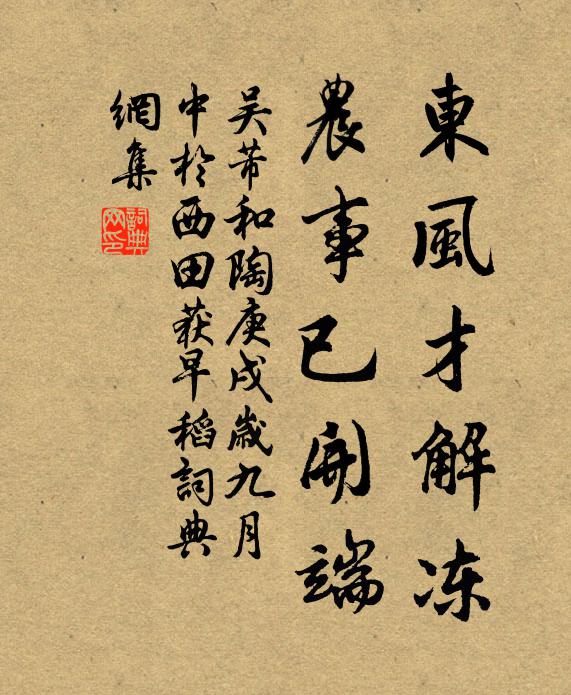 東風才解冻
農事已開端
吴芾和陶庚戌歲九月
中於西田获早稻詞典
網集
詞典
网印